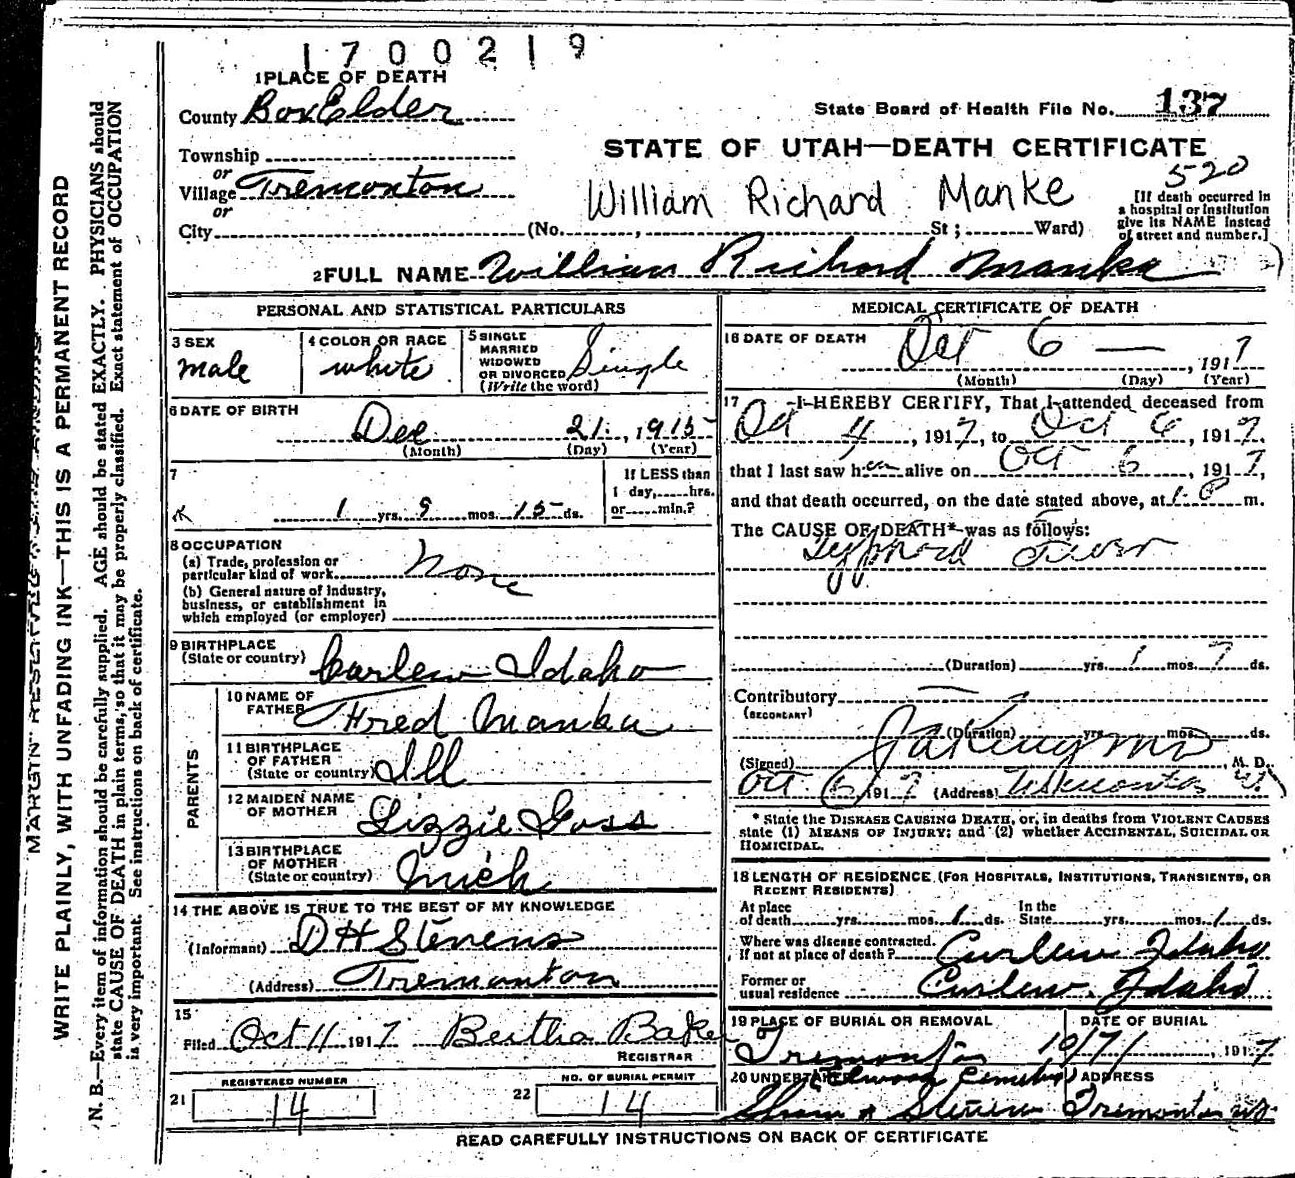 1700219
1 PLACE OF DEATH
County Box Elder
State Board of Health File No. 137
Township
or
Village Tremonton
or
City
STATE OF UTAH—DEATH CERTIFICATE
520
William Richard Manke
(No. , St; Ward)
[If death occurred in
a hospital or institution
give its NAME instead
of street and number.]
2 FULL NAME William Richard Manke
PERSONAL AND STATISTICAL PARTICULARS
3 SEX
male
4 COLOR OR RACE
white
5 SINGLE
MARRIED
WIDOWED
OR DIVORCED
(Write the word)
Single
6 DATE OF BIRTH
Dec 21, 1915
(Month) (Day) (Year)
7
1 yrs. 9 mos. 15 ds.
If LESS than
1 day, hrs.
or min.?
8 OCCUPATION
(a) Trade, profession or
particular kind of work None
(b) General nature of industry,
business, or establishment in
which employed (or employer)
9 BIRTHPLACE
(State or country) Curlew Idaho
PARENTS
10 NAME OF
FATHER Fred Manka
11 BIRTHPLACE
OF FATHER
(State or country) Ill
12 MAIDEN NAME
OF MOTHER Lizzie Goss
13 BIRTHPLACE
OF MOTHER
(State or country) Mich
14 THE ABOVE IS TRUE TO THE BEST OF MY KNOWLEDGE
(Informant) D H Stevens
(Address) Tremonton
15
Filed Oct 11 1917 Bertha Baker
REGISTRAR
REGISTERED NUMBER
21 14
NO. OF BURIAL PERMIT
22 14
MEDICAL CERTIFICATE OF DEATH
16 DATE OF DEATH
Oct 6 — , 1917
(Month) (Day) (Year)
17 I HEREBY CERTIFY, That I attended deceased from
Oct 4, 1917, to Oct 6, 1917,
that I last saw h alive on Oct 6, 1917,
and that death occurred, on the date stated above, at m.
The CAUSE OF DEATH* was as follows:
Typhoid Fever
(Duration) yrs. 1 mos. 7 ds.
Contributory
(SECONDARY)
(Duration) yrs. mos. ds.
(Signed) , M. D.
Oct 6 1917 (Address) Tremonton
* State the DISEASE CAUSING DEATH, or, in deaths from VIOLENT CAUSES
state (1) MEANS OF INJURY; and (2) whether ACCIDENTAL, SUICIDAL OR
HOMICIDAL.
18 LENGTH OF RESIDENCE (FOR HOSPITALS, INSTITUTIONS, TRANSIENTS, OR
RECENT RESIDENTS)
At place
of death yrs. mos. 1 ds.
In the
State yrs. mos. 1 ds.
Where was disease contracted.
If not at place of death? Curlew Idaho
Former or
usual residence Curlew, Idaho
19 PLACE OF BURIAL OR REMOVAL
Tremonton
DATE OF BURIAL
10/7/ , 1917
20 UNDERTAKER
ADDRESS
Tremonton
READ CAREFULLY INSTRUCTIONS ON BACK OF CERTIFICATE
WRITE PLAINLY, WITH UNFADING INK—THIS IS A PERMANENT RECORD
N. B.—Every item of information should be carefully supplied. AGE should be stated EXACTLY. PHYSICIANS should
state CAUSE OF DEATH in plain terms, so that it may be properly classified. Exact statement of OCCUPATION
is very important. See instructions on back of certificate.